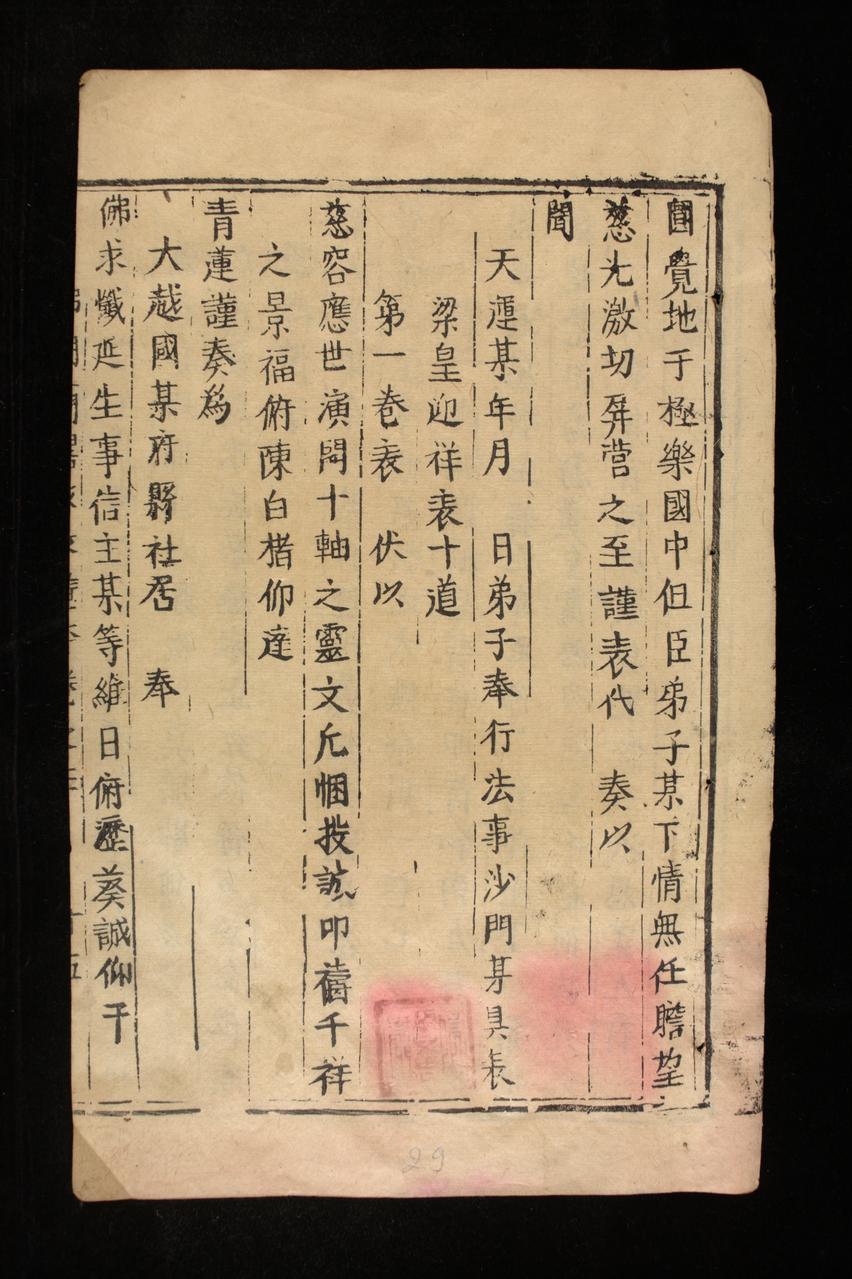 圓覺地于極樂國中但臣弟子某下情無任瞻望
慈光激切屏营之至謹表代　奏以
聞
天運某年月　日弟子奉行法事沙門某具表
梁皇迎祥表十道
第一卷表　伏以
慈容應世演問十軸之靈文凡悃投誠叩禱千祥
之景福俯陳白楮仰達
青蓮謹奏爲
大越國某府縣社居　奉
佛求懺延生事信主某等維日俯瀝葵誠仰干
29